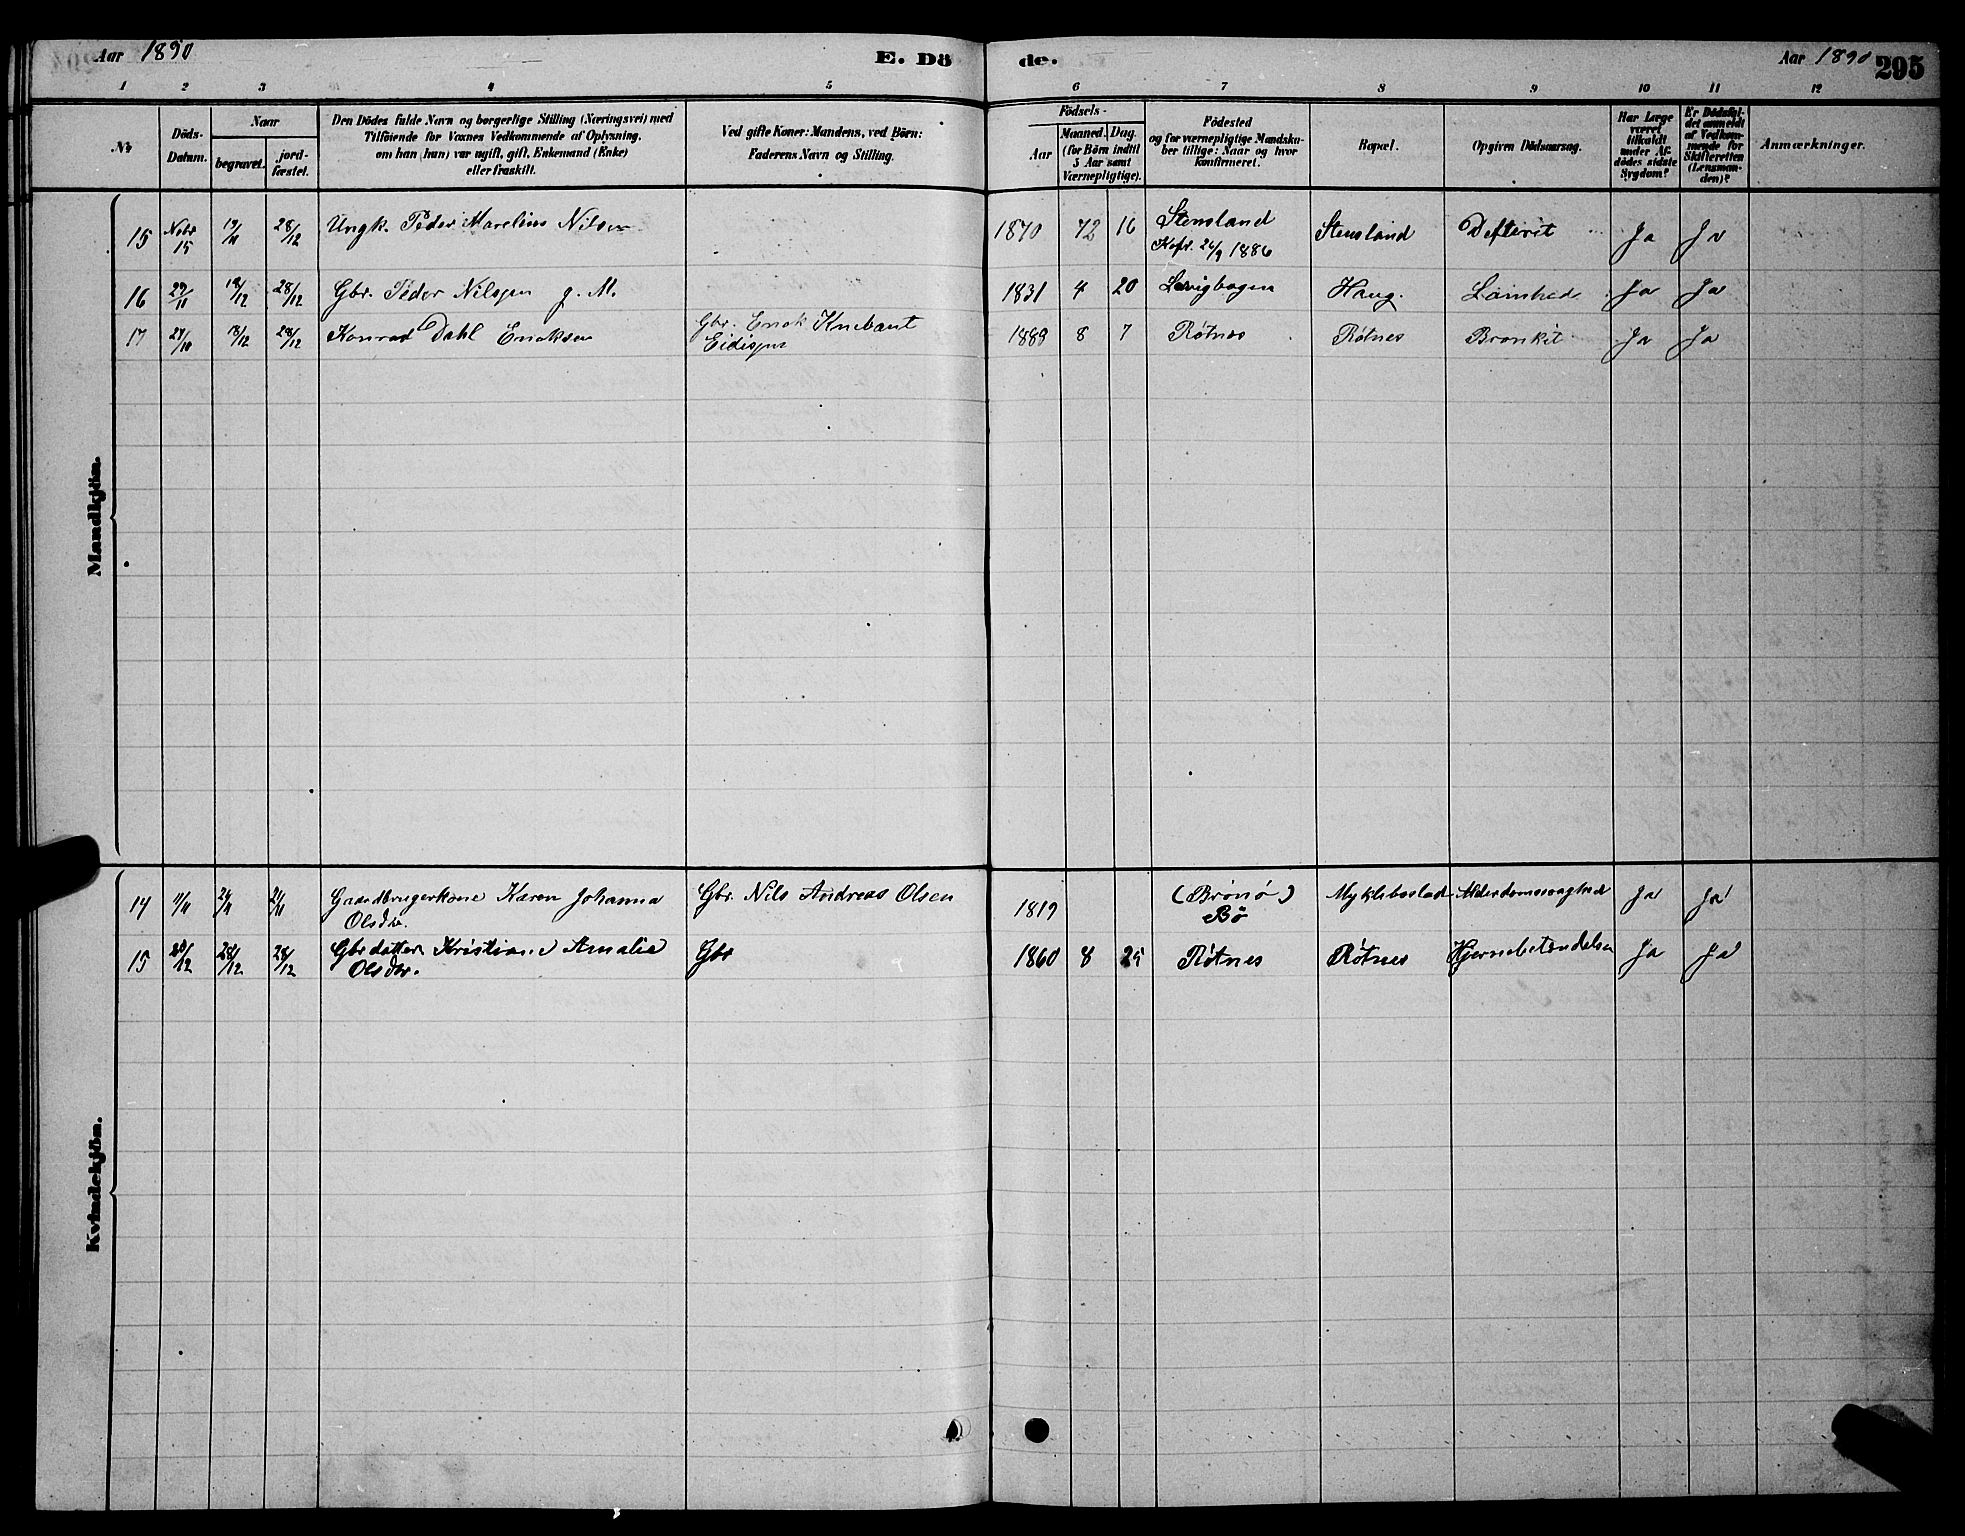 Aar 1890
E. Dö
de.
Aar 1890
295
1 2 3 4 5 6 7 8 9 10 11 12
Nr
Döds-
Datum.
Naar
begravet.
jord-
fæstet.
Den Dödes fulde Navn og borgerlige Stilling (Næringsvei) med
Tilföiende for Voxnes Vedkommende af Oplysning,
om han (hun) var ugift, gift, Enkemand (Enke)
eller fraskilt.
Ved gifte Koner: Mandens, ved Börn:
Faderens Navn og Stilling.
Födsels-
Aar
Maaned. Dag.
(for Börn indtil
5 Aar samt
Værnepligtige).
Födested
og for værnepligtige Mandska-
ber tillige: Naar og hvor
konfirmeret.
Bopæl.
Opgiven Dödsaarsag.
Har Læge
været
tilkaldt
under Af-
dödes sidste
Sygdom?
Er Dödsfal-
det anmeldt
af Vedkom-
mende for
Skifteretten
(Lensman-
den)?
Anmærkninger.
Mandkjön.
15 Nobr 15 19/11 28/12 Ungk. Peder Marelius Nilsen 1870 12 16 Stensland Stensland Defterit Ja Ja
Kofr. 26/9 1886
16 18/12 28/12 Gbr. Peder Nilsen g. M. 1831 4 20 Haug. Ja Ja
17 18/12 28/12 Konrad Dahl Enoksen Gbr. Enok 1889 8 7 Røtnes Røtnes Bronkit Ja Ja
Kvindekjön.
14 11/11 Gaardbrugerkone Karen Johanna Gbr. Nils Andreas Olsen 1819 (Brønø) Alderdomssvaghed Ja Ja
Olsdtr. Bö
15 28/12 28/12 Gbrdatter Kristiane Amalie Gbr 1860 8 Røtnes Røtnes Hjernebetændelse Ja Ja
Olsdtr.